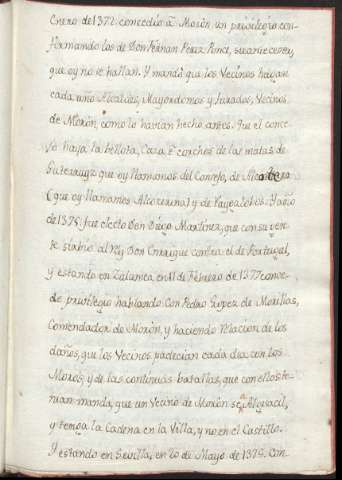 Enero de 1372. concedió à Morón un privilegio con-
formando los de Don Fernan Perez Ponce, su antecesor,
que oy no se hallan. Y manda que los Vecinos hagan
cada año Alcaldes, Mayordomos y Jurados, Vecinos
de Morón, como lo havian hecho antes. Que el conce-
jo haya la bellota, Caza è corchos de las matas de
que oy llamamos del Conejo, de
(que oy llamamos y de Año
de 1375. fue electo Don Diego Martinez, que con su gen-
te sirbio al Rey Don Enrrique contra el de Portugal,
y estando en Zalamea en 11 de Febrero de 1377 conce-
de privilegio hablando con Pedro de
Comendador de Morón, y haciendo relacion de los
daños, que los Vecinos padecian cada dia con los
Moros, y de las continuas batallas, que con ellos te-
nian manda, que un Vecino de Morón sea Alguacil,
y tenga la Cadena en la Villa, y no en el Castillo.
Y estando en Sevilla, en 20 de Mayo de 1379. Con